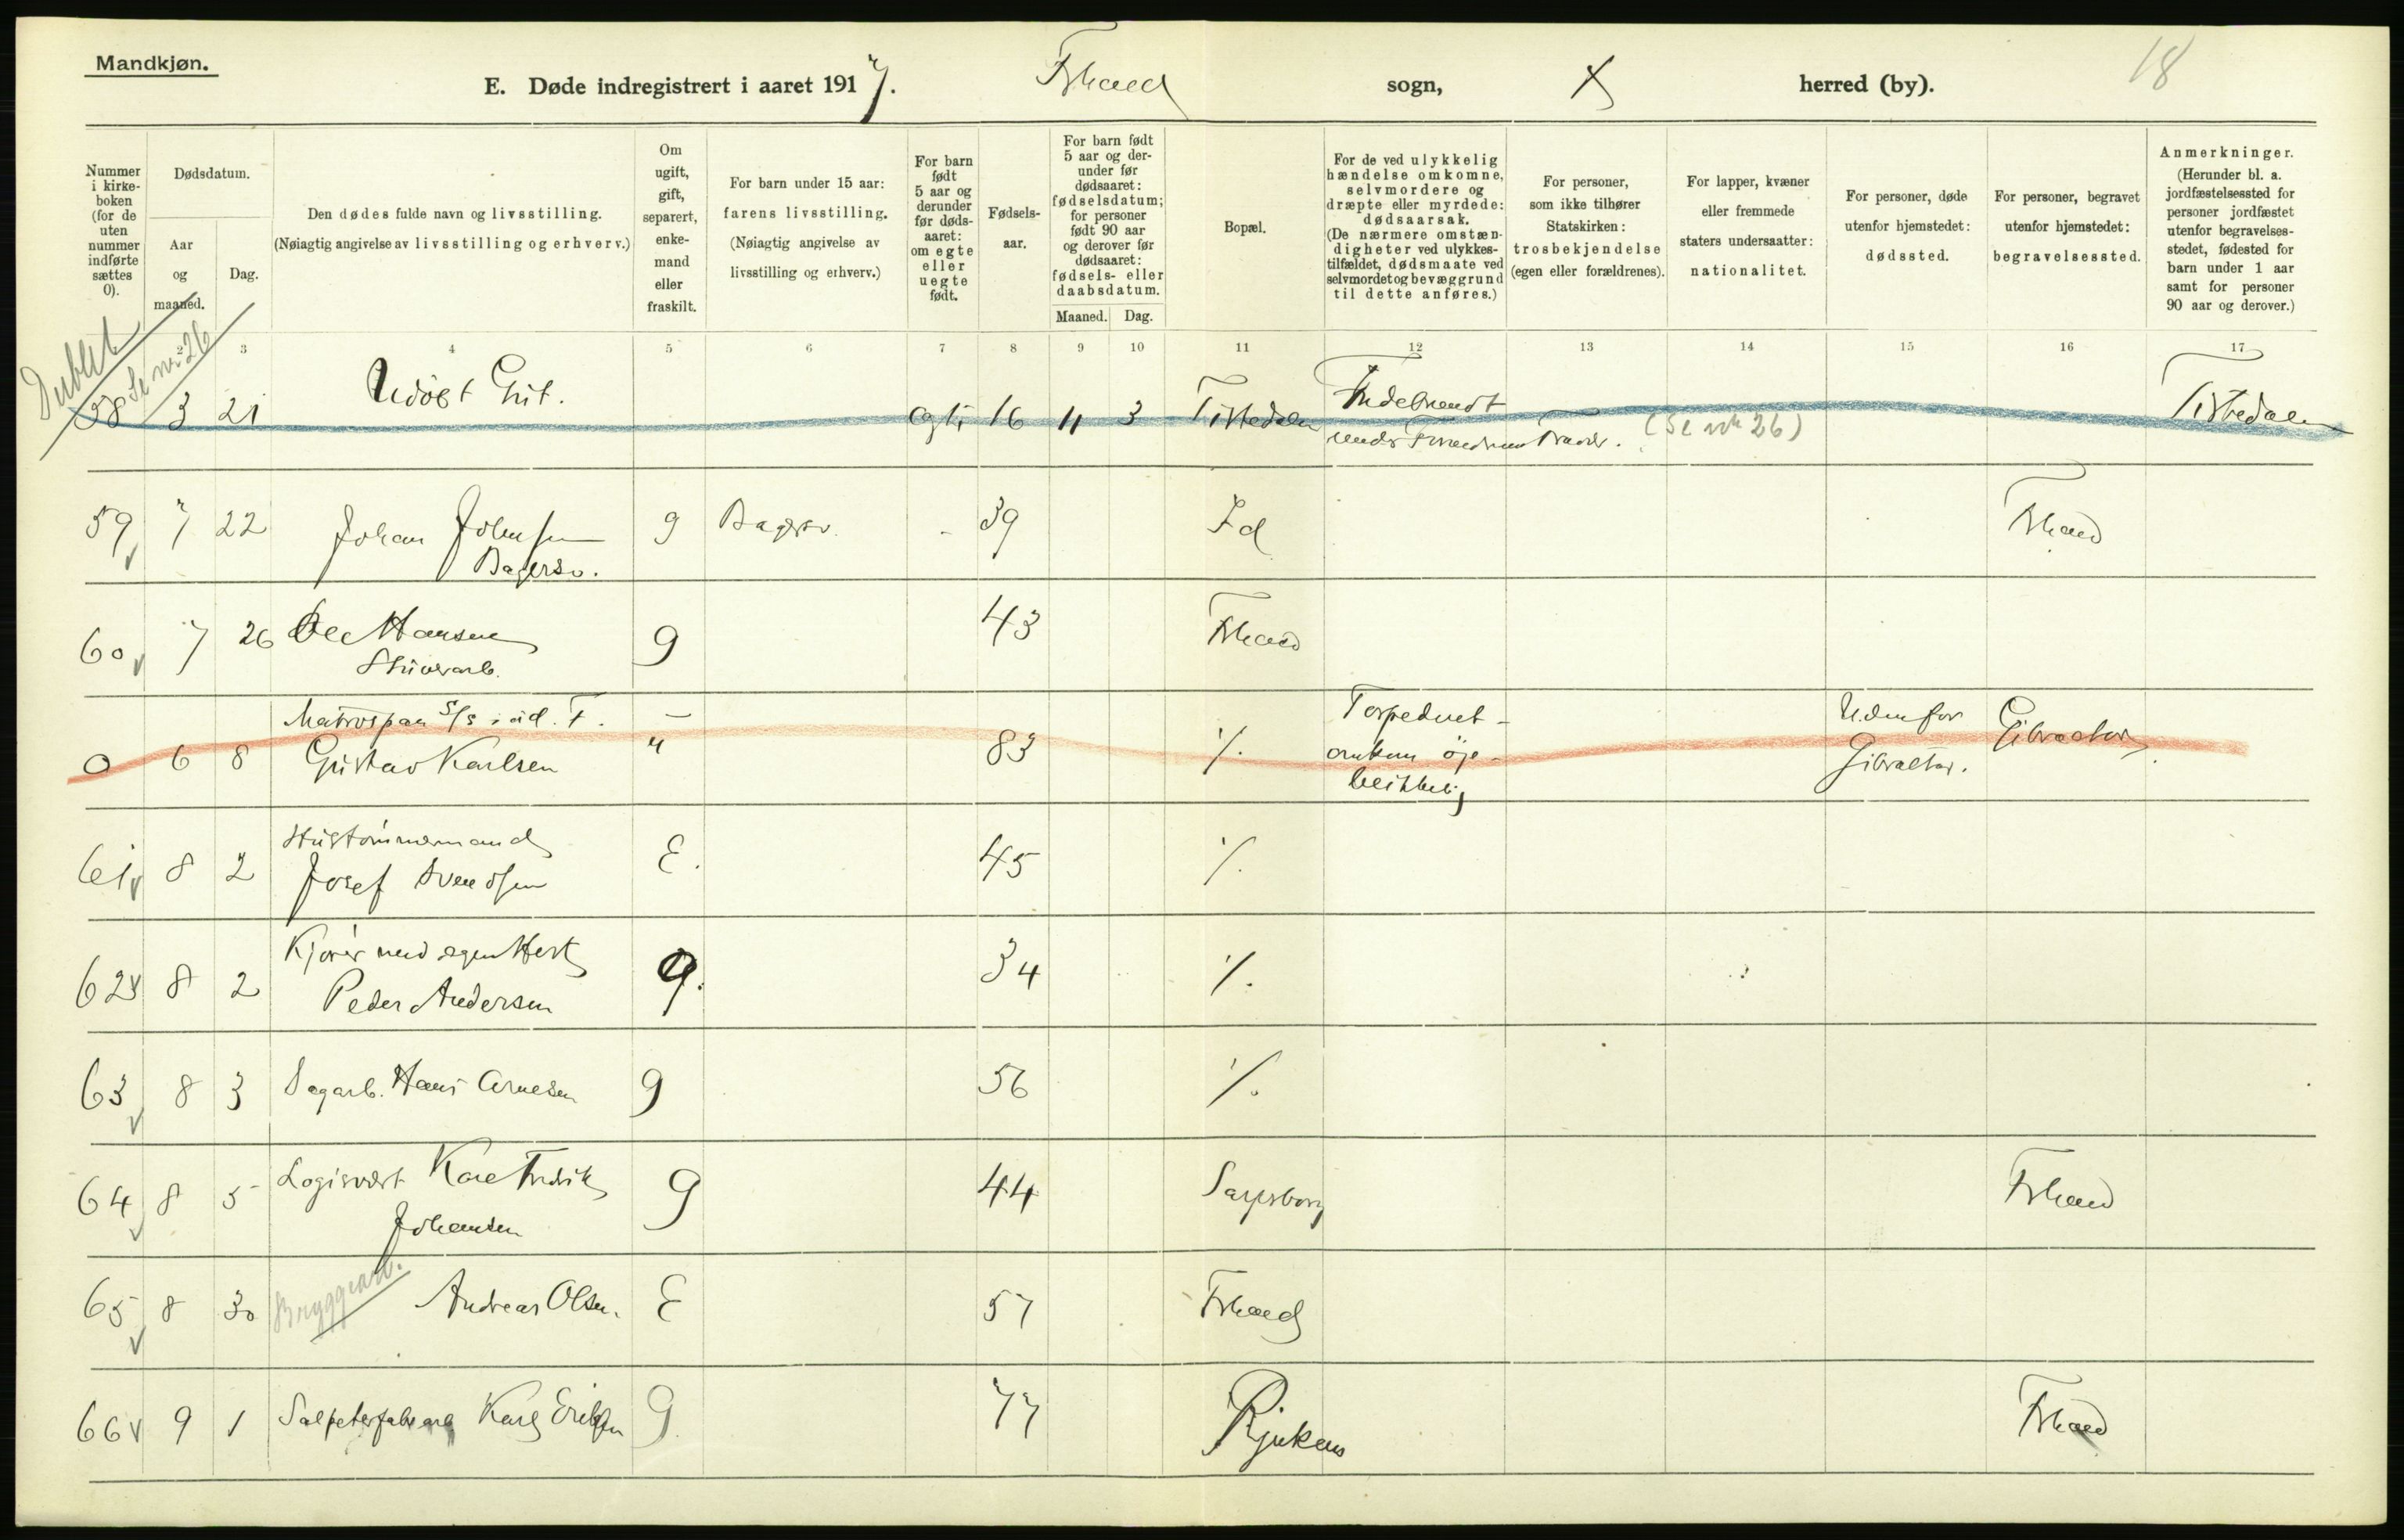 Mandkjøn.
E. Døde indregistrert i aaret 1917. Frhald sogn, herred (by). 18
Nummer i kirke- boken (for de uten nummer indførte sættes 0).
Dødsdatum.
Aar og maaned.
Dag.
Den dødes fulde navn og livsstilling.
(Nøiagtig angivelse av livsstilling og erhverv.)
Om ugift, gift, separert, enke- mand eller fraskilt.
For barn under 15 aar: farens livsstilling.
(Nøiagtig angivelse av livsstilling og erhverv.)
For barn født 5 aar og derunder før døds- aaret: om egte eller uegte født.
Fødsels- aar.
For barn født 5 aar og der- under før dødsaaret: fødselsdatum; for personer født 90 aar og derover før dødsaaret: fødsels- eller daabsdatum.
Maaned. Dag.
Bopæl.
For de ved ulykkelig hændelse omkomne, selvmordere og dræpte eller myrdede: dødsaarsak.
(De nærmere omstæn- digheter ved ulykkes- tilfældet, dødsmaate ved selvmordet og bevæggrund til dette anføres.)
For personer, som ikke tilhører Statskirken: trosbekjendelse (egen eller forældrenes).
For lapper, kvæner eller fremmede staters undersaatter: nationalitet.
For personer, døde utenfor hjemstedet: dødssted.
For personer, begravet utenfor hjemstedet: begravelsessted.
Anmerkninger.
(Herunder bl. a. jordfæstelsessted for personer jordfæstet utenfor begravelses- stedet, fødested for barn under 1 aar samt for personer 90 aar og derover.)
2 3 4 5 6 7 8 9 10 11 12 13 14 15 16 17
Dublet
Se nr 26
58 3 21 Udøbt Gut. 16 11 3 Tistedalen Indebrændt under (Se nr 26) Tistedalen
59 7 22 Johan Johnsen Bagersv. g Bagersv. - 39 Id Frhald
60 7 26 Ole Hansen g 43 Frhald
Stuverarb.
Matros paa S/S
0 6 8 Gustav Karlsen " 83 ./. Torpedert - omkom øje- blikkelig Udenfor Gibraltar. Gibraltar
Hustømmermand
61 8 2 Josef Svendsen E. 45 ./.
Kjører med egen Hest
62 8 2 Peder Andersen g. 34 ./.
63 8 3 Sagarb. Hans Arnesen g 56 ./.
64 8 5 Logivært Karl Fredrik Johansen g 44 Sarpsborg Frhald
65 8 30 Bryggearb. Andreas Olsen. E 57 Frhald
66 9 1 Salpeterfabrarb Karl Eriksen g. 77 Rjukan Frhald